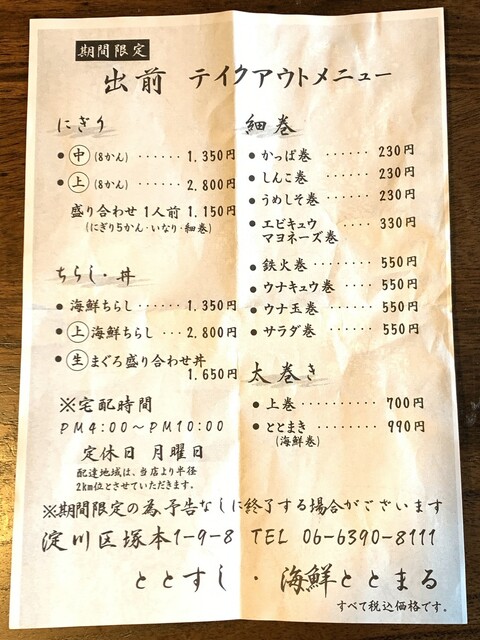 期間限定
出前 テイクアウトメニュー
にぎり
● 中 (8かん) ‥‥‥ 1.350円
● 上 (8かん) ‥‥‥ 2.800円
盛り合わせ 1人前 1.150円
(にぎり5かん・いなり・細巻)
ちらし・丼
● 海鮮ちらし ‥‥‥ 1.350円
● 上 海鮮ちらし ‥‥ 2.800円
● 生 まぐろ盛り合わせ丼
1.650円
※宅配時間
PM4:00〜PM10:00
定休日 月曜日
配達地域は、当店より半径
2km位とさせていただきます。
細巻
● かっぱ巻 ‥‥‥‥ 230円
● しんこ巻 ‥‥‥‥ 230円
● うめしそ巻 ‥‥‥ 230円
● エビキュウ ‥‥‥ 330円
マヨネーズ巻
● 鉄火巻 ‥‥‥‥‥ 550円
● ウナキュウ巻 ‥‥ 550円
● ウナ玉巻 ‥‥‥‥ 550円
● サラダ巻 ‥‥‥‥ 550円
太巻き
● 上巻 ‥‥‥‥‥‥ 700円
● ととまき ‥‥‥‥ 990円
(海鮮巻)
※期間限定の為、予告なしに終了する場合がございます
淀川区塚本1-9-8 TEL 06-6390-8111
ととすし ・ 海鮮ととまる
すべて税込価格です。